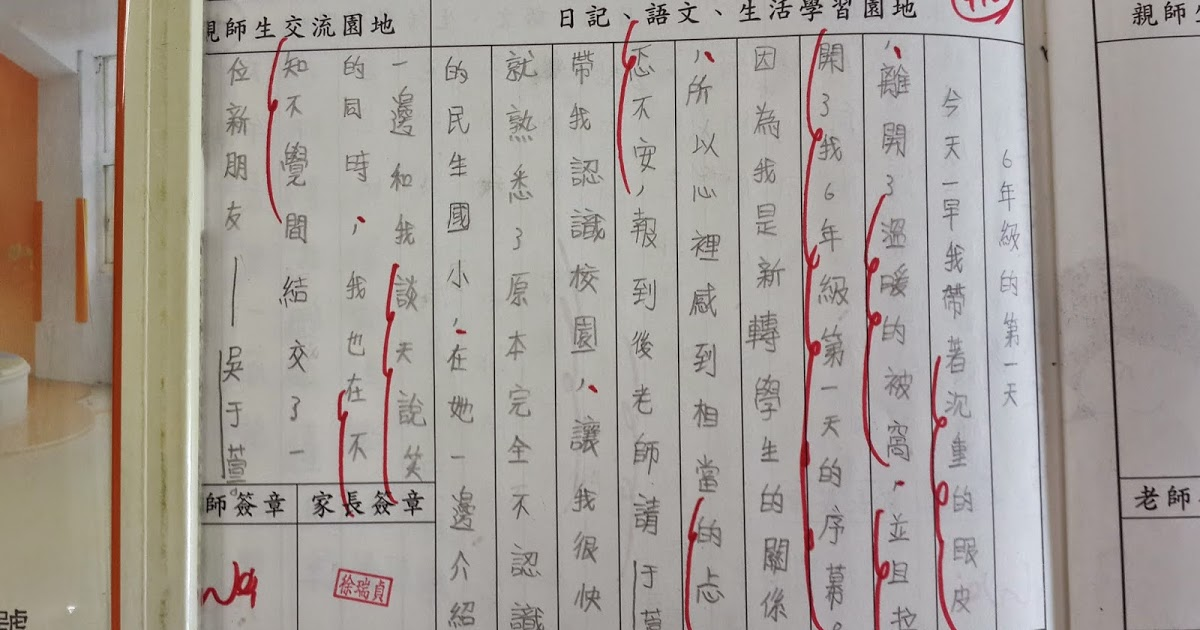 親師生交流園地
日記、語文、生活學習園地
親師生
6年級的第一天
今天一早我帶著沉重的眼皮
,離開了溫暖的被窩,並且拉
開了我6年級第一天的序幕。
因為我是新轉學生的關係
,所以心裡感到相當的忐
忑不安,報到後老師請于萱
帶我認識校園,讓我很快
就熟悉了原本完全不認識
的民生國小,在她一邊介紹
一邊和我談天說笑
的同時,我也在不
知不覺間結交了一
位新朋友—吳于萱。
師簽章
家長簽章
徐瑞貞
老師
號